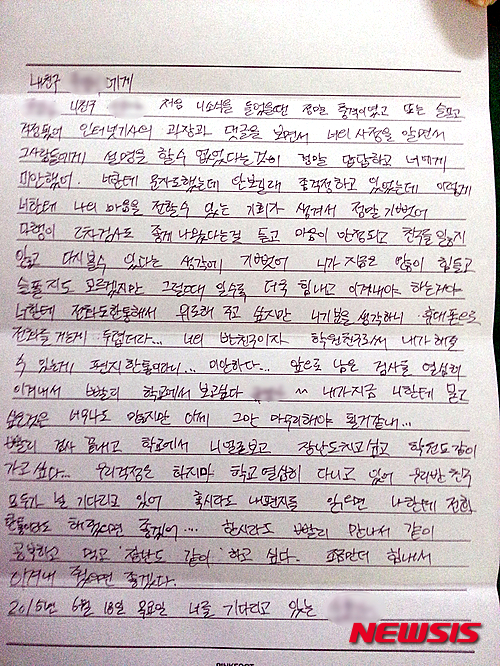 내친구 에게
내친구 처음 니소식을 들었을땐 정말 충격이였고 또는 슬프고
걱정됬어 인터넷기사의 과장과 댓글을 보면서 너의 사정을 알면서
그사람들에게 설명을 할수 없었다는것이 정말 답답하고 너에게
미안했어. 너한테 문자도했는데 안보길래 충격적하고 있었는데 이렇게
너한테 나의 마음을 전할수 있는 기회가 생겨서 정말 기뻤어
다행이 2차검사도 좋게 나왔다는걸 듣고 마음이 안정되고 친구를 잃지
않고 다시볼수 있다는 생각에 기뻤어 니가 지금은 많이 힘들고
슬플지도 모르겠지만 그럴때 일수록 더욱 힘내고 이겨내야 하는거다
너한테 전화도한통해서 위로해 주고 싶지만 니기분을 생각하니 휴대폰으로
전화를 거는게 두렵더라... 너의 반친구이자 학원친구로써 내가해줄
수 있는게 편지한통이라니... 미안하다... 앞으로 남은 검사를 열심히
이겨내서 빨리 학교에서 보고싶다 ~~ 내가지금 너한테 묻고
싶은것은 너무나도 많지만 이제 그만 마무리해야 될거같네...
빨리 검사 끝내고 학교에서 니얼굴보고 장난도치고싶고 학원도같이
가고싶다... 우리걱정은 하지마 학교 열심히 다니고 있어 우리반 친구
모두가 널 기다리고 있어 혹시라도 내편지를 읽으면 나한테 전화
한통이라도 해줬으면 좋겠어... 한시라도 빨리 만나서 같이
공부하고 먹고 장난도 같이 하고 싶다. 조금만더 힘내서
이겨내 줬으면 좋겠다.
2015년 6월 18일 목요일 너를 기다리고 있는
NEWSIS